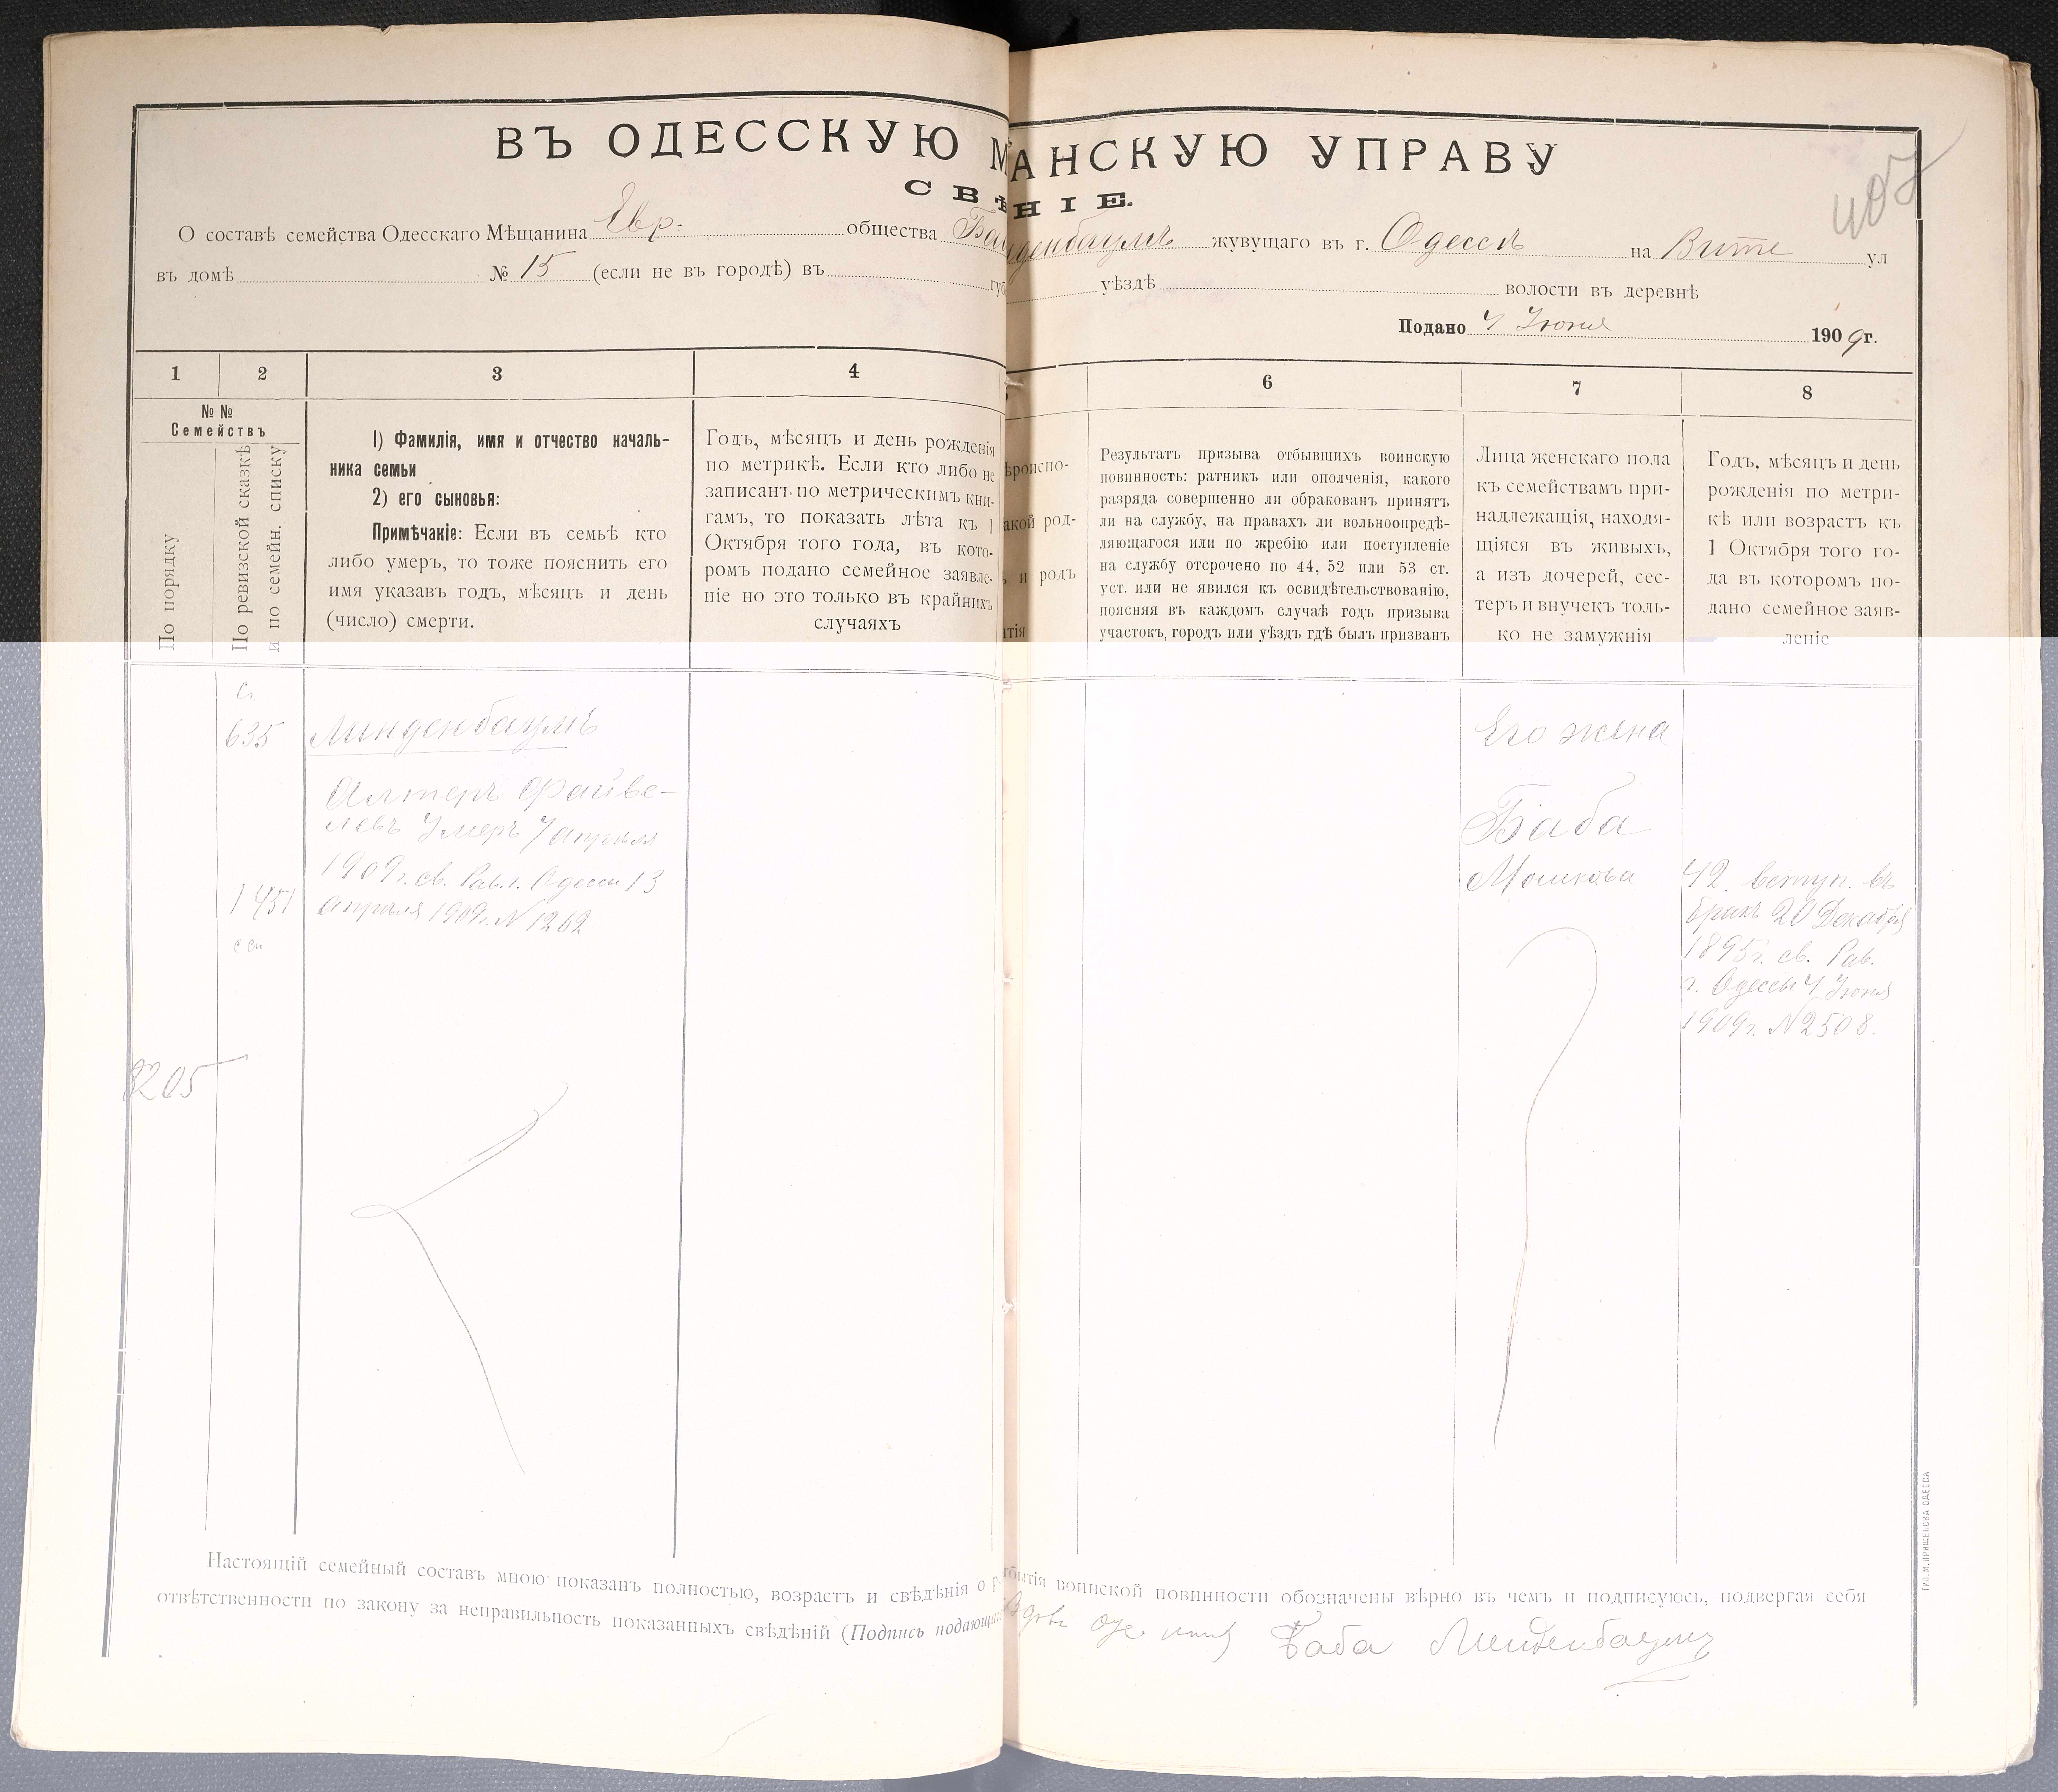 407
ВЪ ОДЕССКУЮ М АНСКУЮ УПРАВУ
СВѢ НІЕ.
О составѣ семейства Одесскаго Мѣщанина Евр. общества Ба нденбаумъ жувущаго въ г. Одессѣ на Витте ул
въ домѣ № 15 (если не въ городѣ) въ губ уѣздѣ волости въ деревнѣ
Подано 4 Іюня 1909 г.
1 2 3 4 6 7 8
№ №
Семействъ
По порядку
По ревизской сказкѣ
и по семейн. списку
1) Фамилія, имя и отчество началь-
ника семьи
2) его сыновья:
Примѣчаніе: Если въ семьѣ кто
либо умеръ, то тоже пояснить его
имя указавъ годъ, мѣсяцъ и день
(число) смерти.
Годъ, мѣсяцъ и день рожденія
по метрикѣ. Если кто либо не
записанъ по метрическимъ кни-
гамъ, то показать лѣта къ 1
Октября того года, въ кото-
ромъ подано семейное заявле-
ніе но это только въ крайнихъ
случаяхъ
ѣроиспо-
акой род-
и родъ
тія
Результатъ призыва отбывшихъ воинскую
повинность: ратникъ или ополченія, какого
разряда совершенно ли обракованъ принятъ
ли на службу, на правахъ ли вольноопредѣ-
ляющагося или по жребію или поступленіе
на службу отсрочено по 44, 52 или 53 ст.
уст. или не явился къ освидѣтельствованію,
поясняя въ каждомъ случаѣ годъ призыва
участокъ, городъ или уѣздъ гдѣ былъ призванъ
Лица женскаго пола
къ семействамъ при-
надлежащія, находя-
щіяся въ живыхъ,
а изъ дочерей, сес-
теръ и внучекъ толь-
ко не замужнія
Годъ, мѣсяцъ и день
рожденія по метри-
кѣ или возрастъ къ
1 Октября того го-
да въ которомъ по-
дано семейное заяв-
леніе
635
1451
8205
Линденбаумъ
Алтеръ Файве-
левъ Умеръ 7 апрѣля
1909 г. св. Рав. г. Одессы 13
апрѣля 1909 г. N 1262
Его жена
Баба
Мошкова
42. вступ. въ
бракъ 20 Декабря
1895 г. св. Рав.
г. Одессы 4 Іюня
1909 г. N 2508.
Настоящій семейный составъ мною показанъ полностью, возрастъ и свѣдѣнія о р тбытія воинской повинности обозначены вѣрно въ чемъ и подписуюсь, подвергая себя
отвѣтственности по закону за неправильность показанныхъ свѣдѣній (Подпись подающа Вдова Баба Линденбаумъ
ТИП. М. ПРИЩЕПОВА ОДЕССА